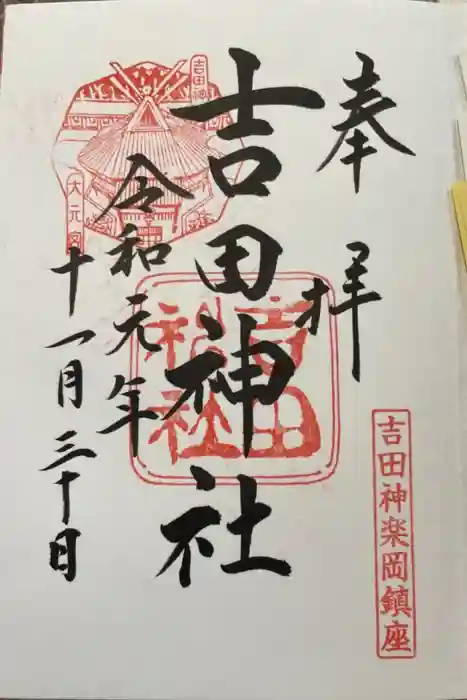 奉拝
吉田神楽岡鎮座
吉田神社
吉田神社
令和元年
十一月三十日
吉田神
大元宮